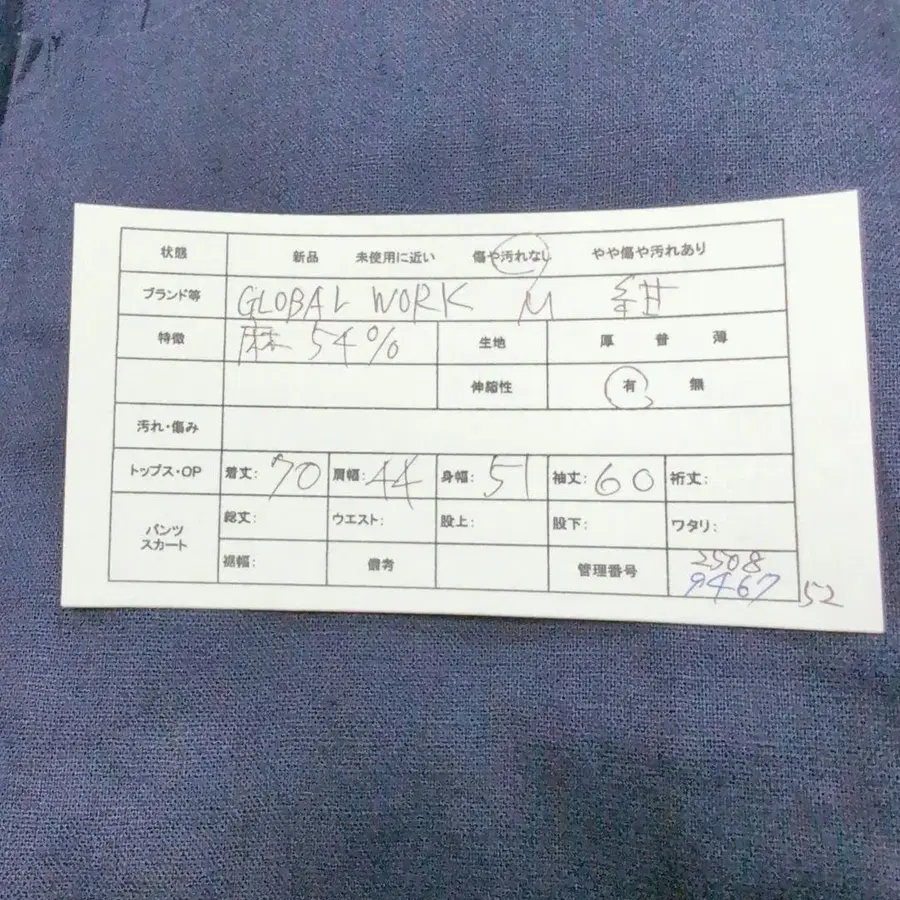 状態 新品 未使用に近い 傷や汚れなし やや傷や汚れあり
ブランド等 GLOBAL WORK M 紺
特徴 麻 54% 生地 厚 普 薄
伸縮性 有 無
汚れ・傷み
トップス・OP 着丈: 70 肩幅: 44 身幅: 51 袖丈: 60 裄丈:
パンツ スカート 総丈: ウエスト: 股上: 股下: ワタリ:
裾幅: 備考 管理番号 2508
9467 52